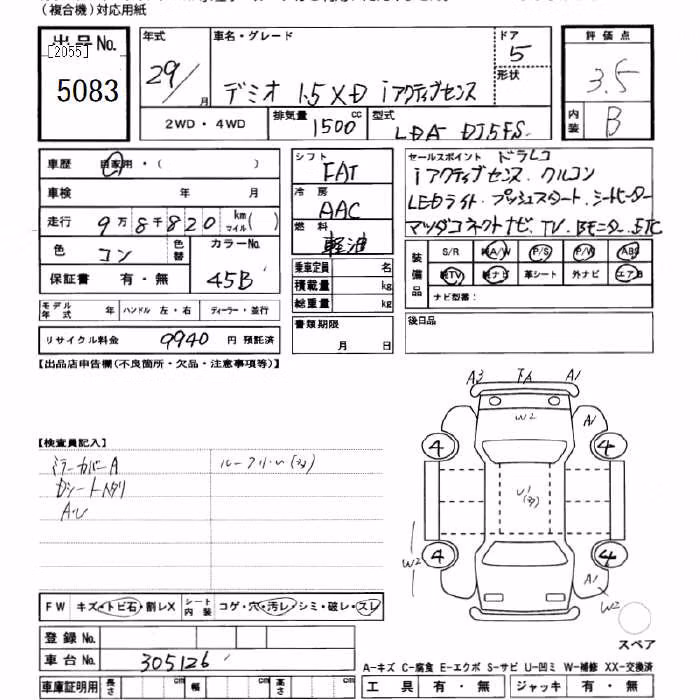 (複合機)対応用紙
出品No.
[2055]
5083
年式
29/
月
車名・グレード
デミオ 1.5XD iアクティブセンス
ドア
5
形状
2WD・4WD
排気量 1500 cc
型式 LDA DJ5FS
評価点
3.5
内装
B
車歴 自家用・( )
車検 年 月
走行 9万8千820 km マイル( )
色 コン 色替 カラーNo.
45B
保証書 有・無
モデル年式 年 ハンドル 左・右 ディーラー・並行
リサイクル料金 9940 円 預託済
シフト
FAT
冷房
AAC
燃料
軽油
乗車定員 名
積載量 kg
総重量 kg
書類期限
月 日
セールスポイント ドラレコ
iアクティブセンス.クルコン
LEDライト.プッシュスタート.シートヒーター
マツダコネクトナビ.TV.Bモニター.ETC
装備品
S/R 純A/W P/S P/W ABS
純TV 純ナビ 革シート 外ナビ エアB
ナビ型番:
後日品
【出品店申告欄(不良箇所・欠品・注意事項等)】
【検査員記入】
ミラーカバーA
Dシートヘタリ
A・U
A3 A1
W2
A1
4 4
U1
(多)
4 4
W2
A1
W2
スペア
FW キズ・トビ石・割レX シート内装 コゲ・穴・汚レ・シミ・破レ・スレ
登録No.
車台No. 305126
車庫証明用 長さ cm 幅 cm 高さ cm
A-キズ C-腐食 E-エクボ S-サビ U-凹ミ W-補修 XX-交換済
工具 有・無 ジャッキ 有・無